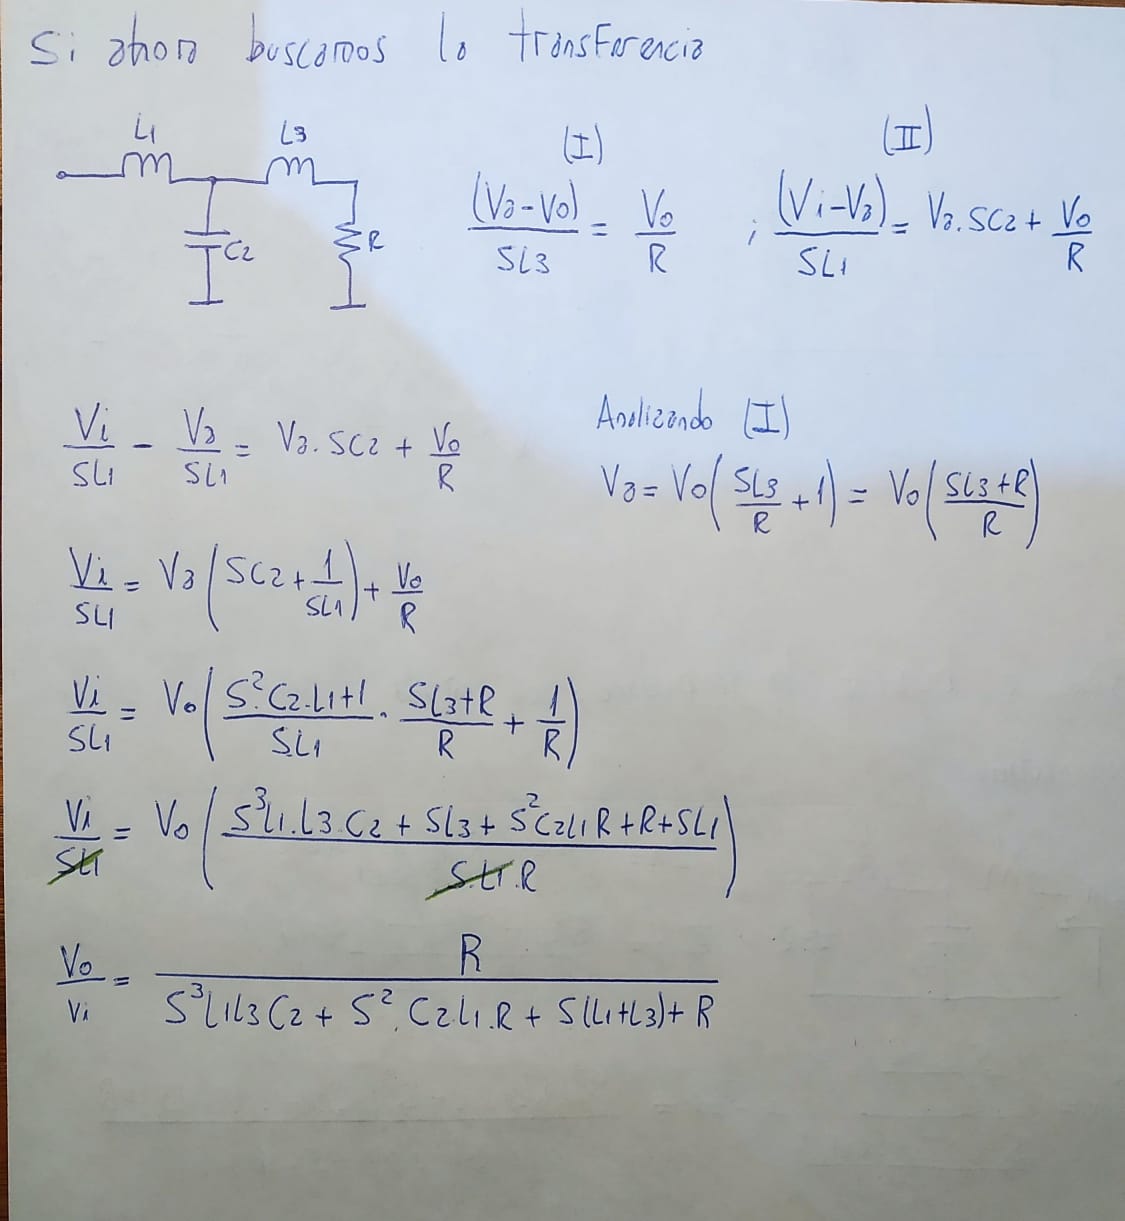 Si ahora buscamos la transferencia
L1 L3
C2 R
(I) (II)
(Va-Vo)/SL3 = Vo/R ; (Vi-Va)/SL1 = Va.SC2 + Vo/R
Vi/SL1 - Va/SL1 = Va.SC2 + Vo/R
Analizando (I)
Va = Vo(SL3/R + 1) = Vo(SL3+R/R)
Vi/SL1 = Va(SC2 + 1/SL1) + Vo/R
Vi/SL1 = Vo(S².C2.L1+1/SL1 . SL3+R/R + 1/R)
Vi/SL1 = Vo(S³L1.L3.C2 + SL3 + S²C2L1R + R + SL1/S.L1.R)
Vo/Vi = R/S³L1L3C2 + S².C2L1.R + S(L1+L3) + R